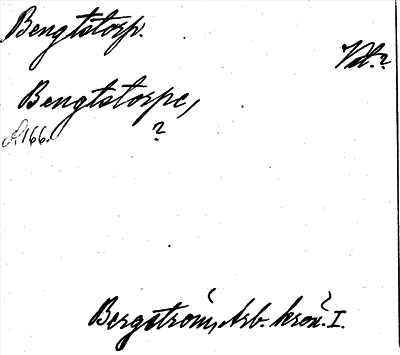 Bengtstorp.
Vstm.?
Bengtstorpe,
A 166. ?
Bergström, Arb. krön. I.